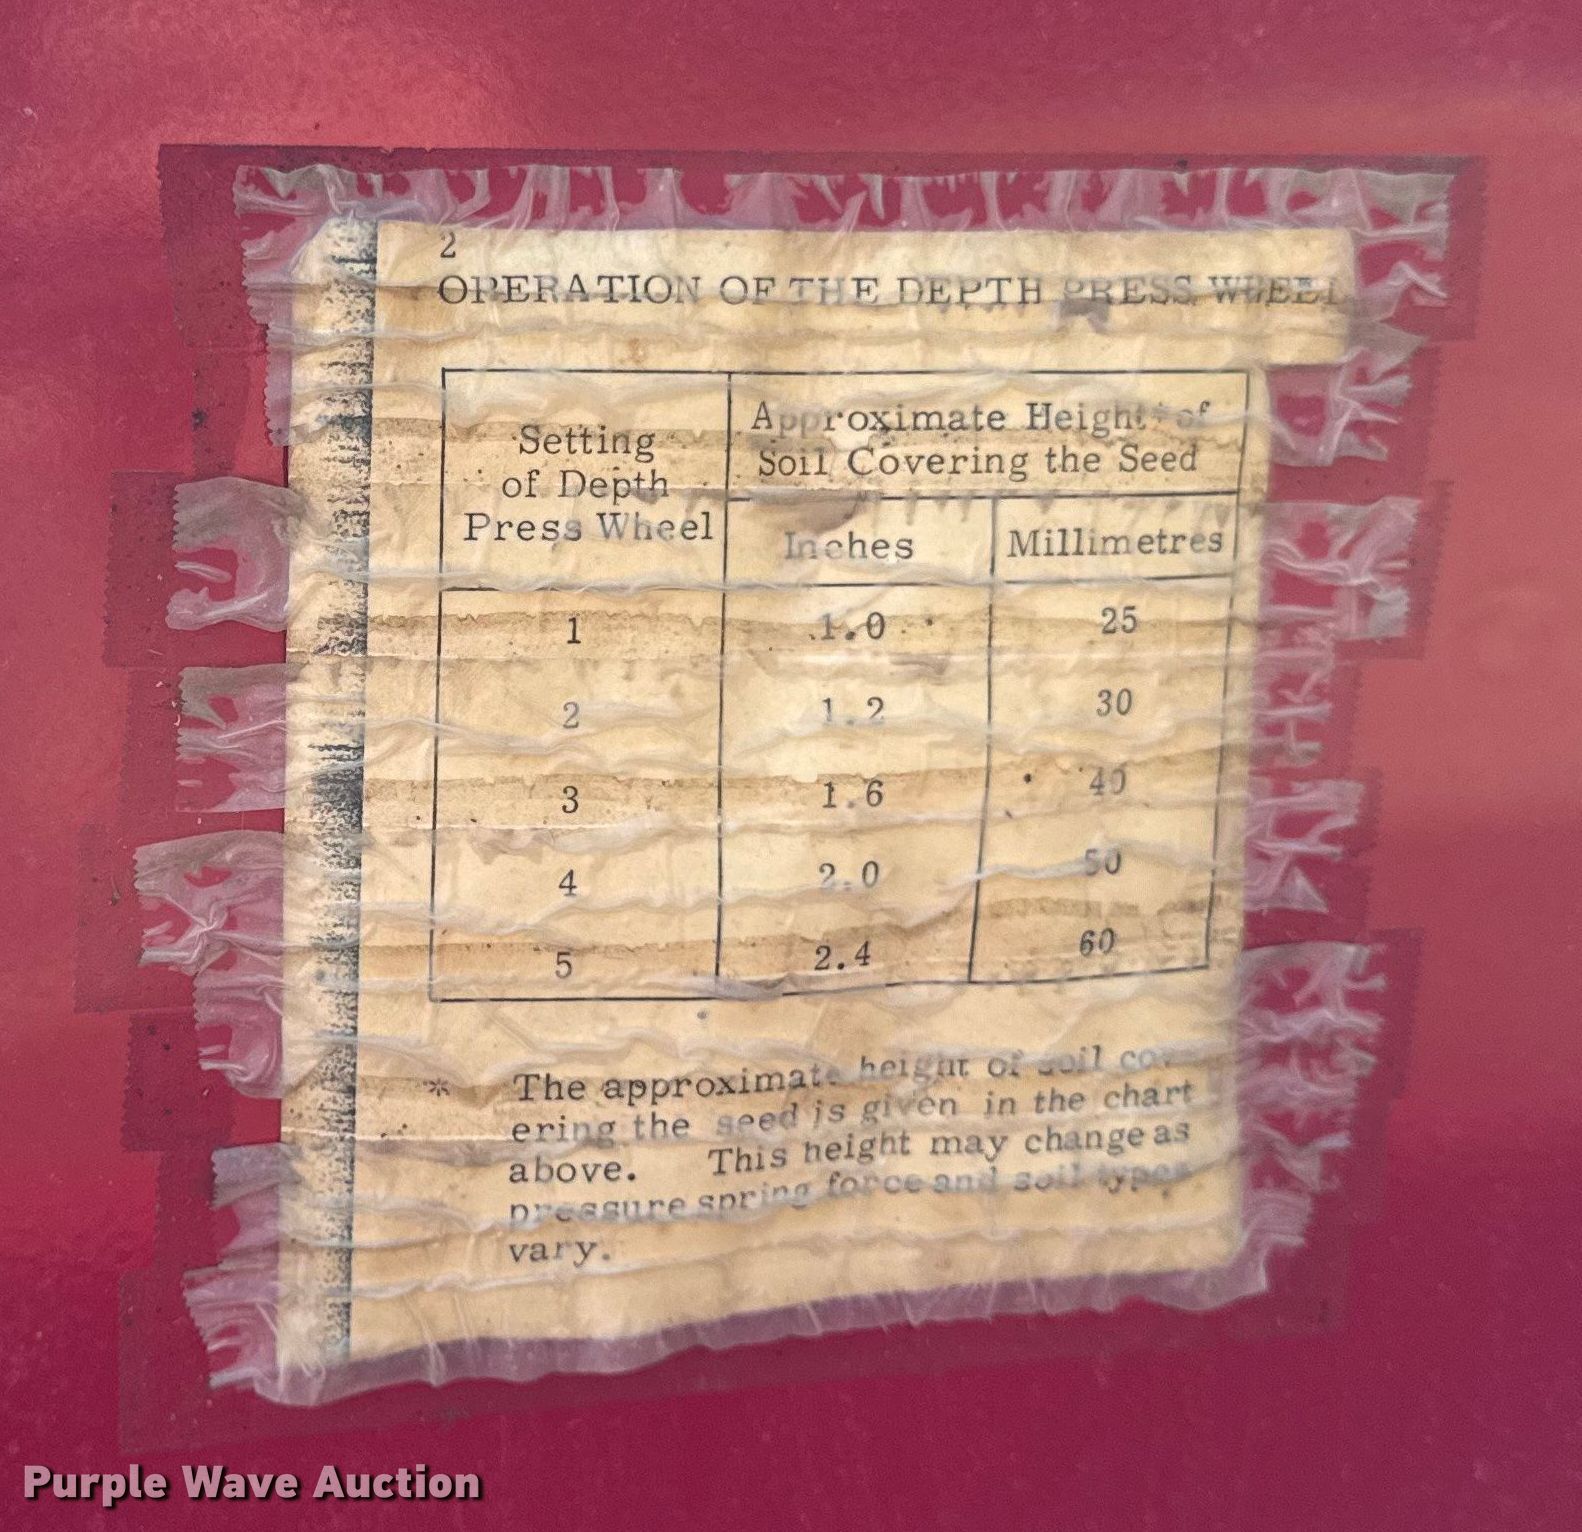 2
OPERATION OF THE DEPTH PRESS WHEEL
Setting
of Depth
Press Wheel
Approximate Height* of
Soil Covering the Seed
Inches Millimetres
1 1.0 25
2 1.2 30
3 1.6 40
4 2.0 50
5 2.4 60
* The approximate height of soil cov-
ering the seed is given in the chart
above. This height may change as
pressure spring force and soil types
vary.
Purple Wave Auction